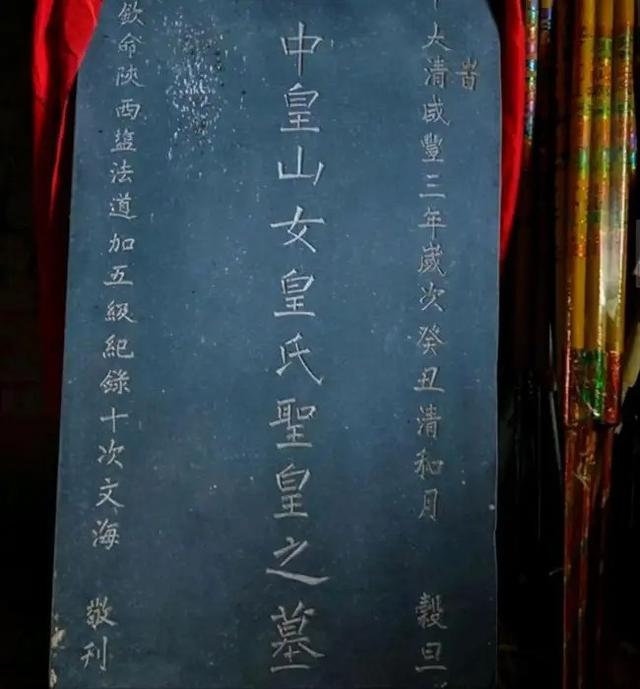 旹
大清咸豐三年歲次癸丑清和月 穀旦
中皇山女皇氏聖皇之墓
欽命陝西盐法道加五級紀錄十次文海 敬刊